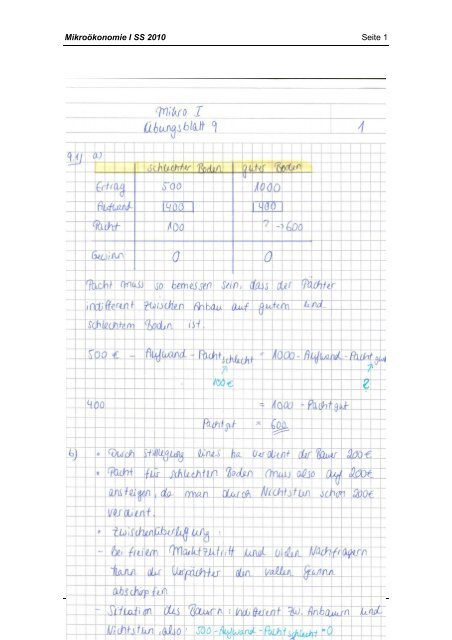 Mikroökonomie I SS 2010 Seite 1
Mikro I
Übungsblatt 9 1
9.1) a)
schlechter Boden guter Boden
Ertrag 500 1000
Aufwand 400 400
Pacht 100 ? → 600
Gewinn 0 0
Pacht muss so bemessen sein, dass der Pächter
indifferent zwischen Anbau auf gutem und
schlechtem Boden ist.
500 € - Aufwand - Pacht schlecht = 1000 - Aufwand - Pacht gut
↑ ↑
100€ ?
400 = 1000 - Pacht gut
Pacht gut = 600
b) • Durch Stilllegung eines ha verdient der Bauer 200€
• Pacht für schlechten Boden muss also auf 200€
ansteigen, da man durch Nichtstun schon 200€
verdient.
• Zwischenüberlegung
- Bei freiem Marktzutritt und vielen Nachfragern
kann der Verpächter den vollen Gewinn
abschöpfen
- Situation des Bauern: indifferent zw. Anbauen und
Nichtstun, also: 500 - Aufwand - Pacht schlecht = 0